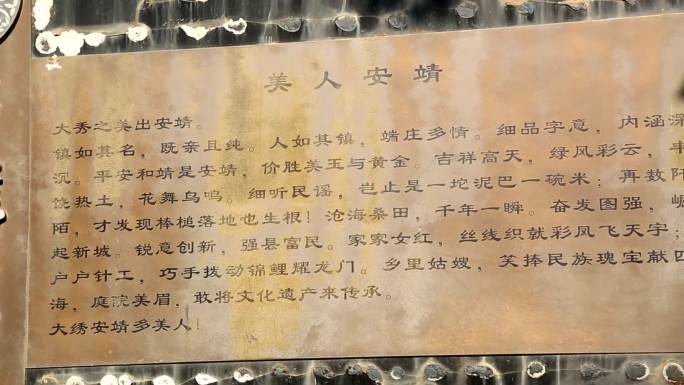 美人安靖
大秀之美出安靖。
镇如其名，既亲且纯。人如其镇，端庄多情。细品字意，内涵深
沉。平安和靖是安靖，价胜美玉与黄金。吉祥高天，绿风彩云，丰
饶热土，花舞鸟鸣。细听民谣，岂止是一坨泥巴一碗米；再数阡
陌，才发现棒槌落地也生根！沧海桑田，千年一瞬。奋发图强，崛
起新城。锐意创新，强县富民。家家女红，丝线织就彩凤飞天宇；
户户针工，巧手拨动锦鲤耀龙门。乡里姑嫂，笑捧民族瑰宝献四
海，庭院美眉，敢将文化遗产来传承。
大绣安靖多美人！